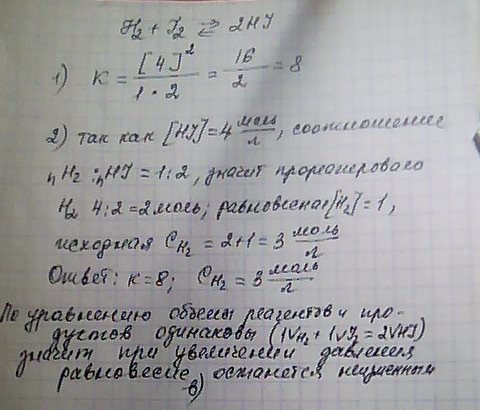 H₂ + J₂ ⇄ 2HJ
1) K = [4]² / 1·2 = 16 / 2 = 8
2) так как [HJ] = 4 моль/л, соотношение
nH₂ : nHJ = 1:2, значит прореагировало
H₂ 4:2 = 2 моль; равновесная [H₂] = 1,
исходная C_H₂ = 2+1 = 3 моль/л
Ответ: к = 8; C_H₂ = 3 моль/л
По уравнению объемы реагентов и про-
дуктов одинаковы (1V_H₂ + 1V_J₂ = 2VHJ)
значит при увеличении давления
равновесие останется неизменным
-в)